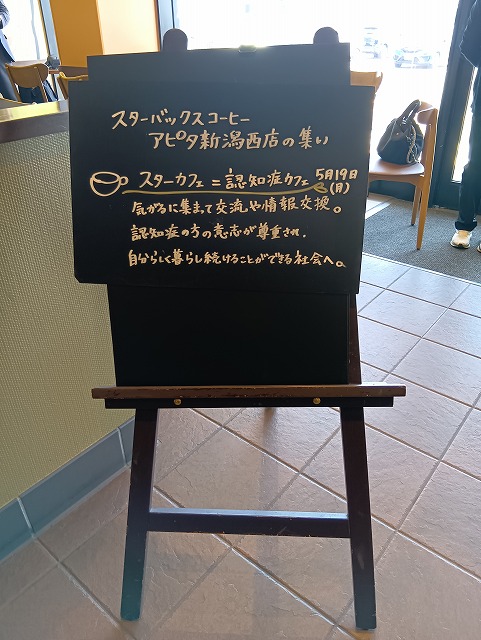 スターバックスコーヒー
アピタ新潟西店の集い
スターカフェ=認知症カフェ 5月19日
(月)
気がるに集まって交流や情報交換。
認知症の方の意志が尊重され、
自分らしく暮らし続けることができる社会へ。